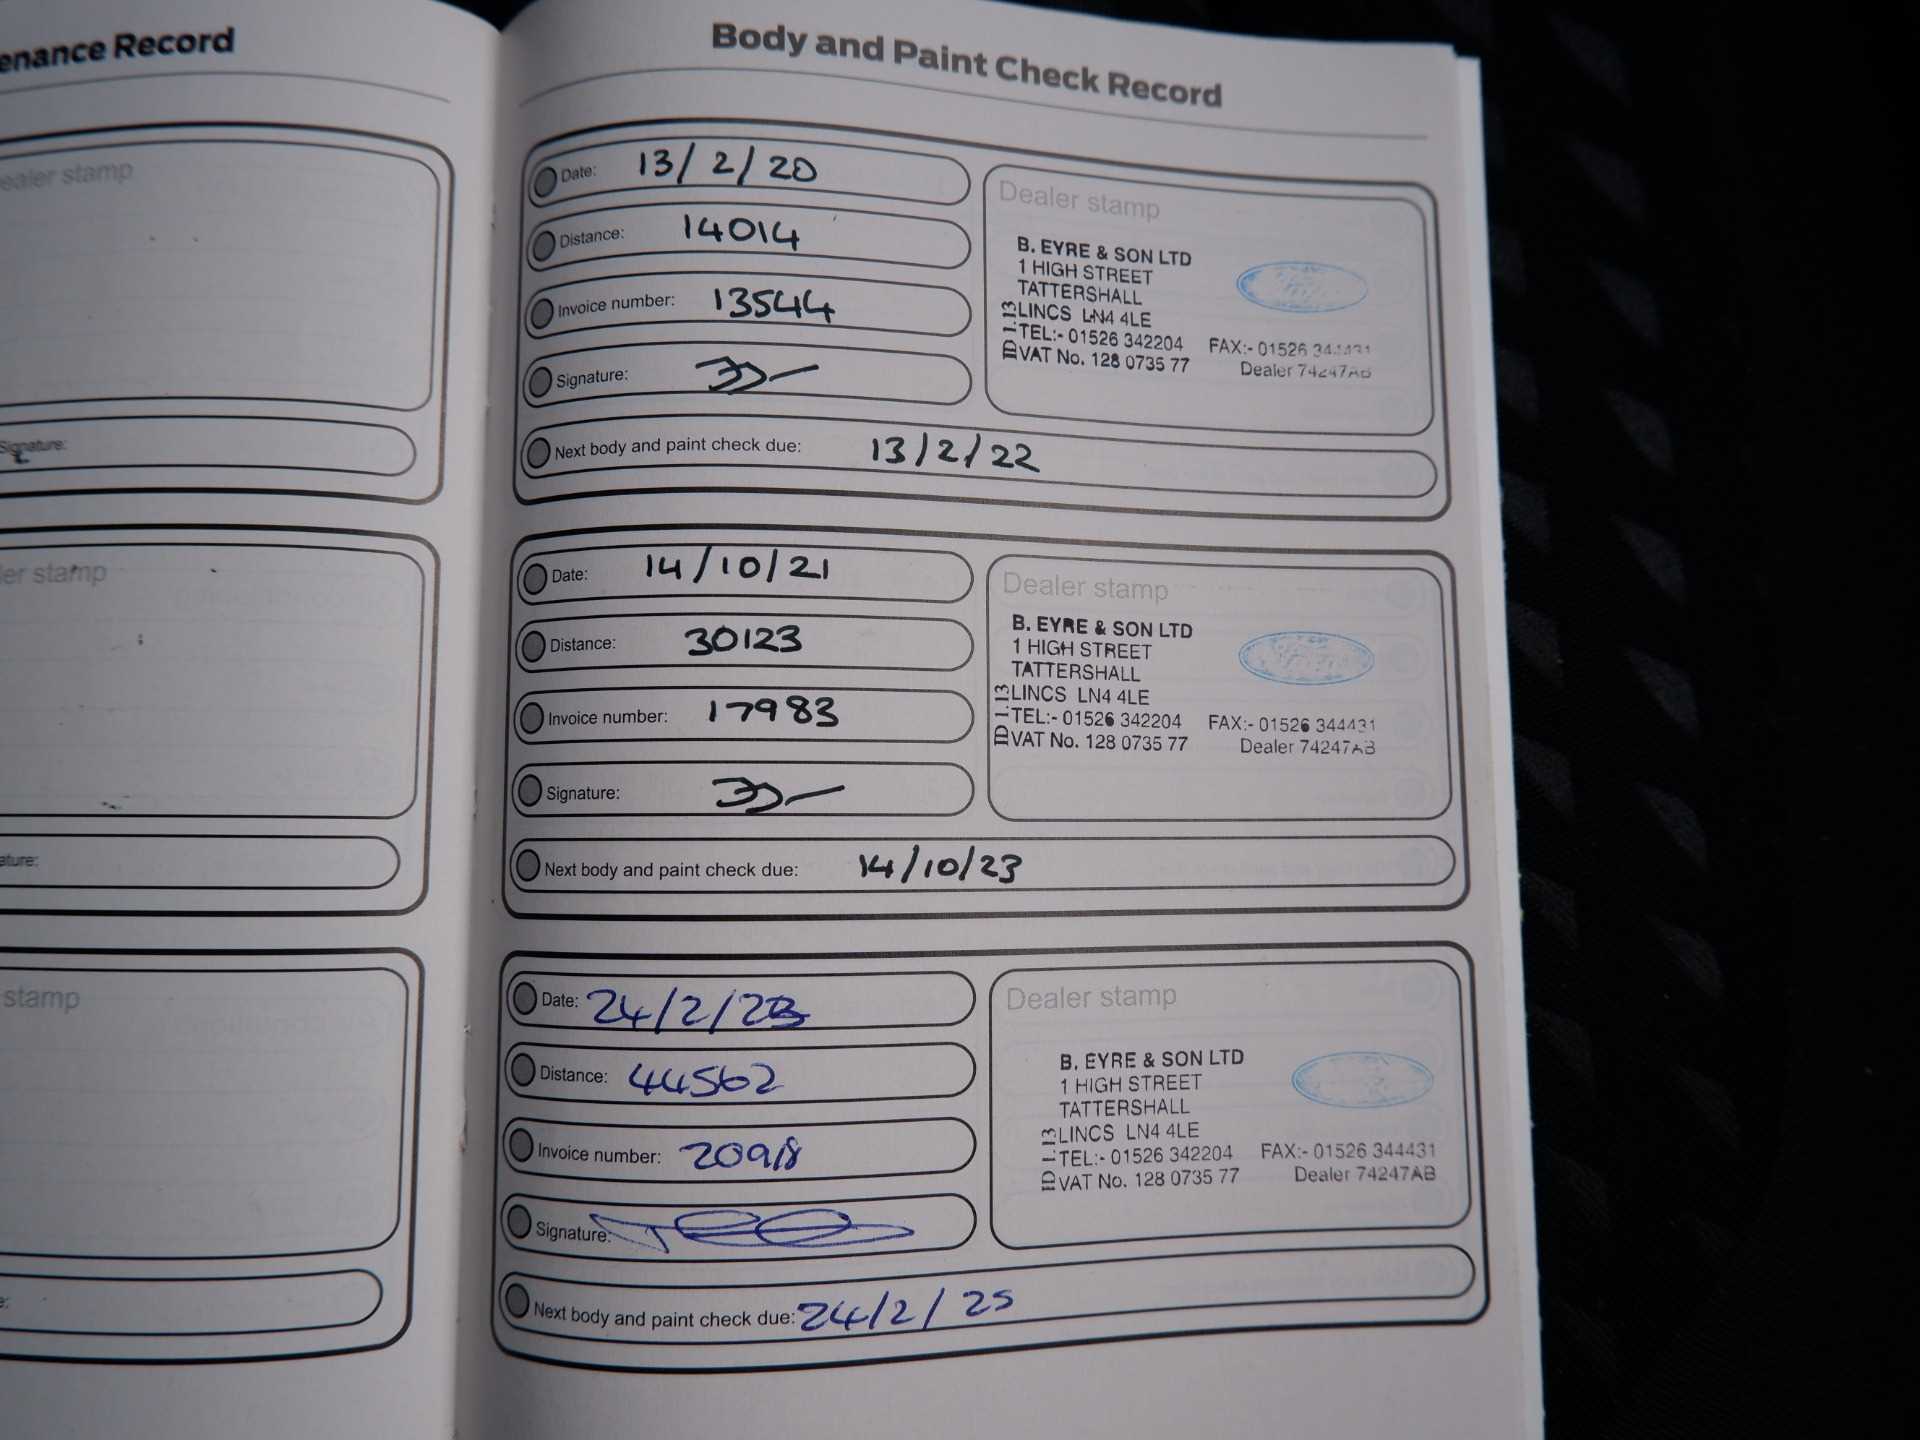 enance Record
ealer stamp
Signature:
ler stamp
ature:
stamp
e:
Body and Paint Check Record
Date: 13/2/20
Distance: 14014
Invoice number: 13544
Signature:
Dealer stamp
B. EYRE & SON LTD
1 HIGH STREET
TATTERSHALL
LINCS LN4 4LE
TEL:- 01526 342204 FAX:- 01526 344431
VAT No. 128 0735 77 Dealer 74247AB
ID 1.13
Next body and paint check due: 13/2/22
Date: 14/10/21
Distance: 30123
Invoice number: 17983
Signature:
Dealer stamp
B. EYRE & SON LTD
1 HIGH STREET
TATTERSHALL
LINCS LN4 4LE
TEL:- 01526 342204 FAX:- 01526 344431
VAT No. 128 0735 77 Dealer 74247AB
ID 1.13
Next body and paint check due: 14/10/23
Date: 24/2/23
Distance: 44562
Invoice number: 20918
Signature:
Dealer stamp
B. EYRE & SON LTD
1 HIGH STREET
TATTERSHALL
LINCS LN4 4LE
TEL:- 01526 342204 FAX:- 01526 344431
VAT No. 128 0735 77 Dealer 74247AB
ID 1.13
Next body and paint check due: 24/2/25